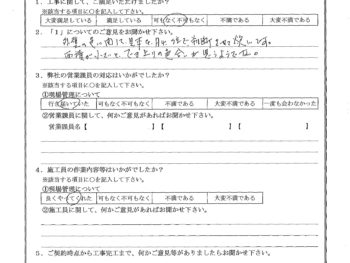 1．工事に関して、ご満足いただけましたか？
※該当する項目に○を記入して下さい。
大変満足している 満足している 可もなく不可もなく 不満である 大変不満である
2．「1」についてのご意見をお聞かせ下さい。
3．弊社の営業議員の対応はいかがでしたか？
※該当する項目に○を記入して下さい。
①現場管理について
行き届いていた 可もなく不可もなく 不満である 大変不満である 一度も会わなかった
②営業議員に関して、何かご意見があればお聞かせ下さい。
営業議員名【 】【 】【 】
4．施工員の作業内容等はいかがでしたか？
※該当する項目に○を記入して下さい。
①現場管理について
良くやってくれた 可もなく不可もなく 不満である 大変不満である
②施工員に関して、何かご意見があればお聞かせ下さい。
5．ご契約時点から工事完工まで、何かご意見等がありましたらお聞かせ下さい。